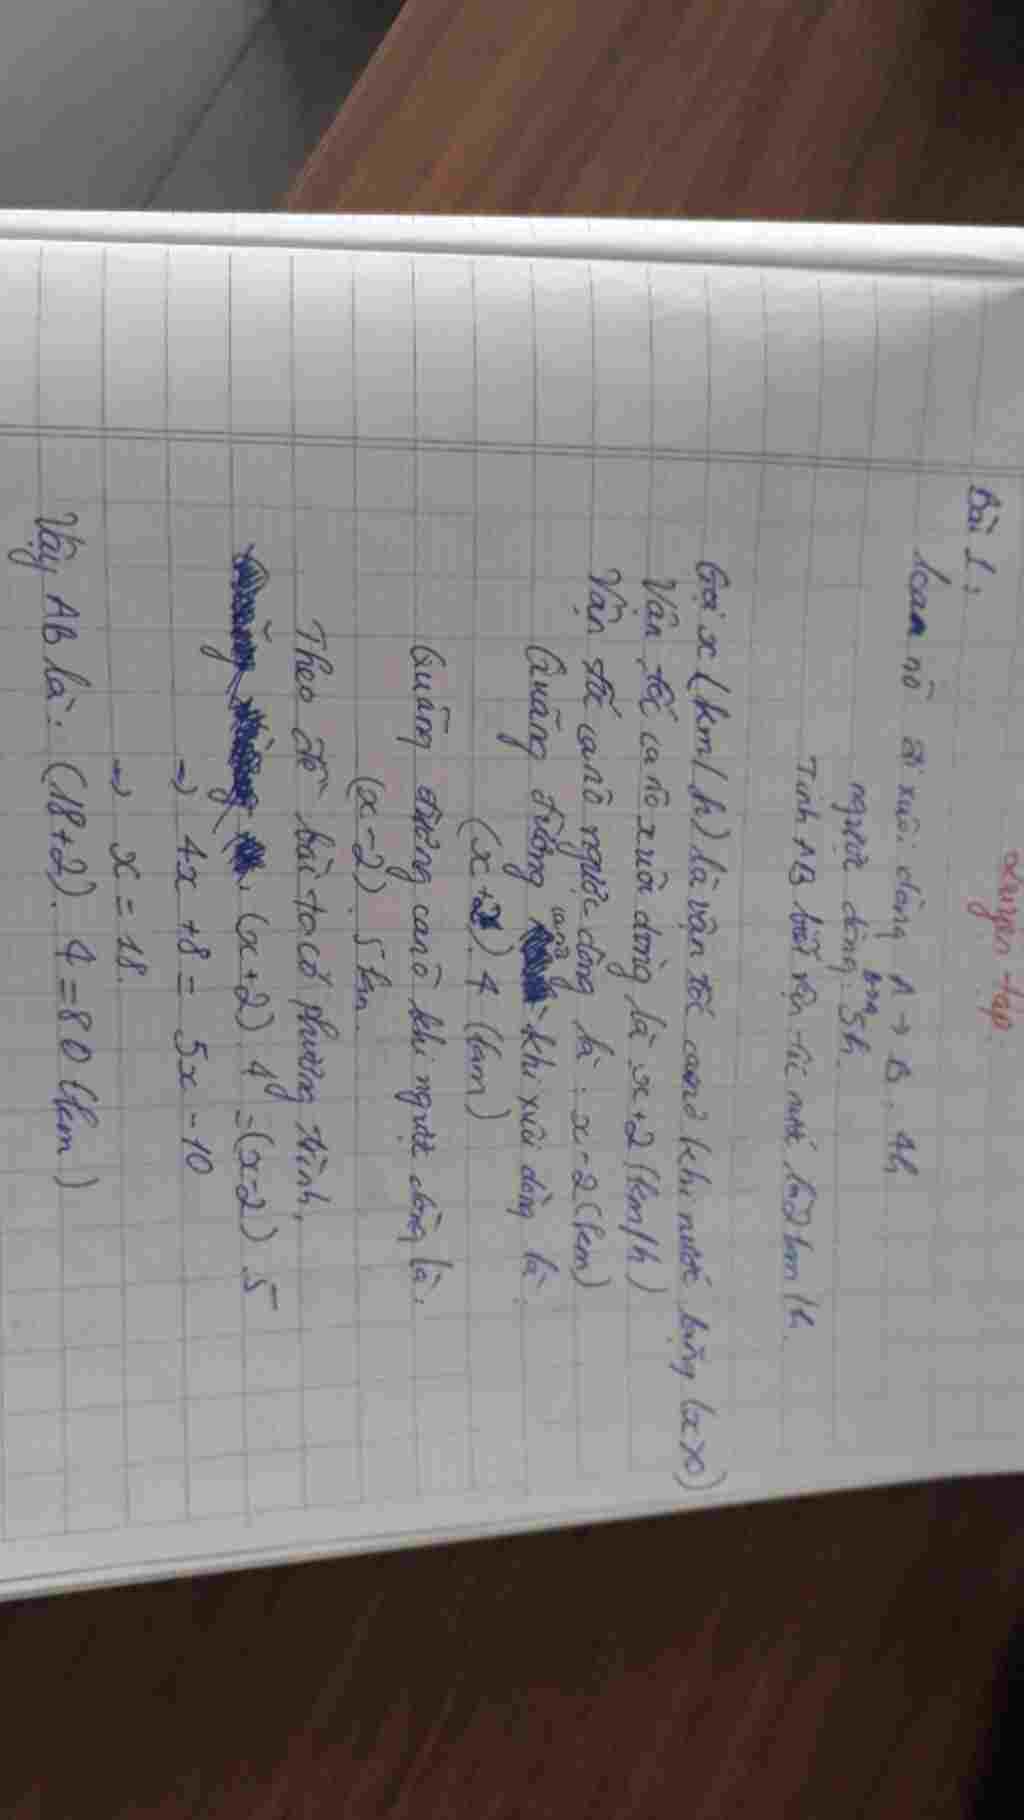 Luyện tập.
Bài 1:
1 ca nô đi xuôi dòng A → B : 4h
ngược dòng 5h.
Tính AB biết vận tốc nước là 2 km/h.
Gọi x (km/h) là vận tốc canô khi nước lặng (x>0)
Vận tốc ca nô xuôi dòng là x+2 (km/h)
Vận tốc canô ngược dòng là : x-2 (km)
Quãng đường canô khi xuôi dòng là.
(x+2). 4 (km)
Quãng đường canô khi ngược dòng là:
(x-2). 5 km.
Theo đề bài ta có phương trình,
(x+2). 4 = (x-2). 5
→ 4x + 8 = 5x - 10
→ x = 18.
Vậy AB là: (18+2). 4 = 80 (km)